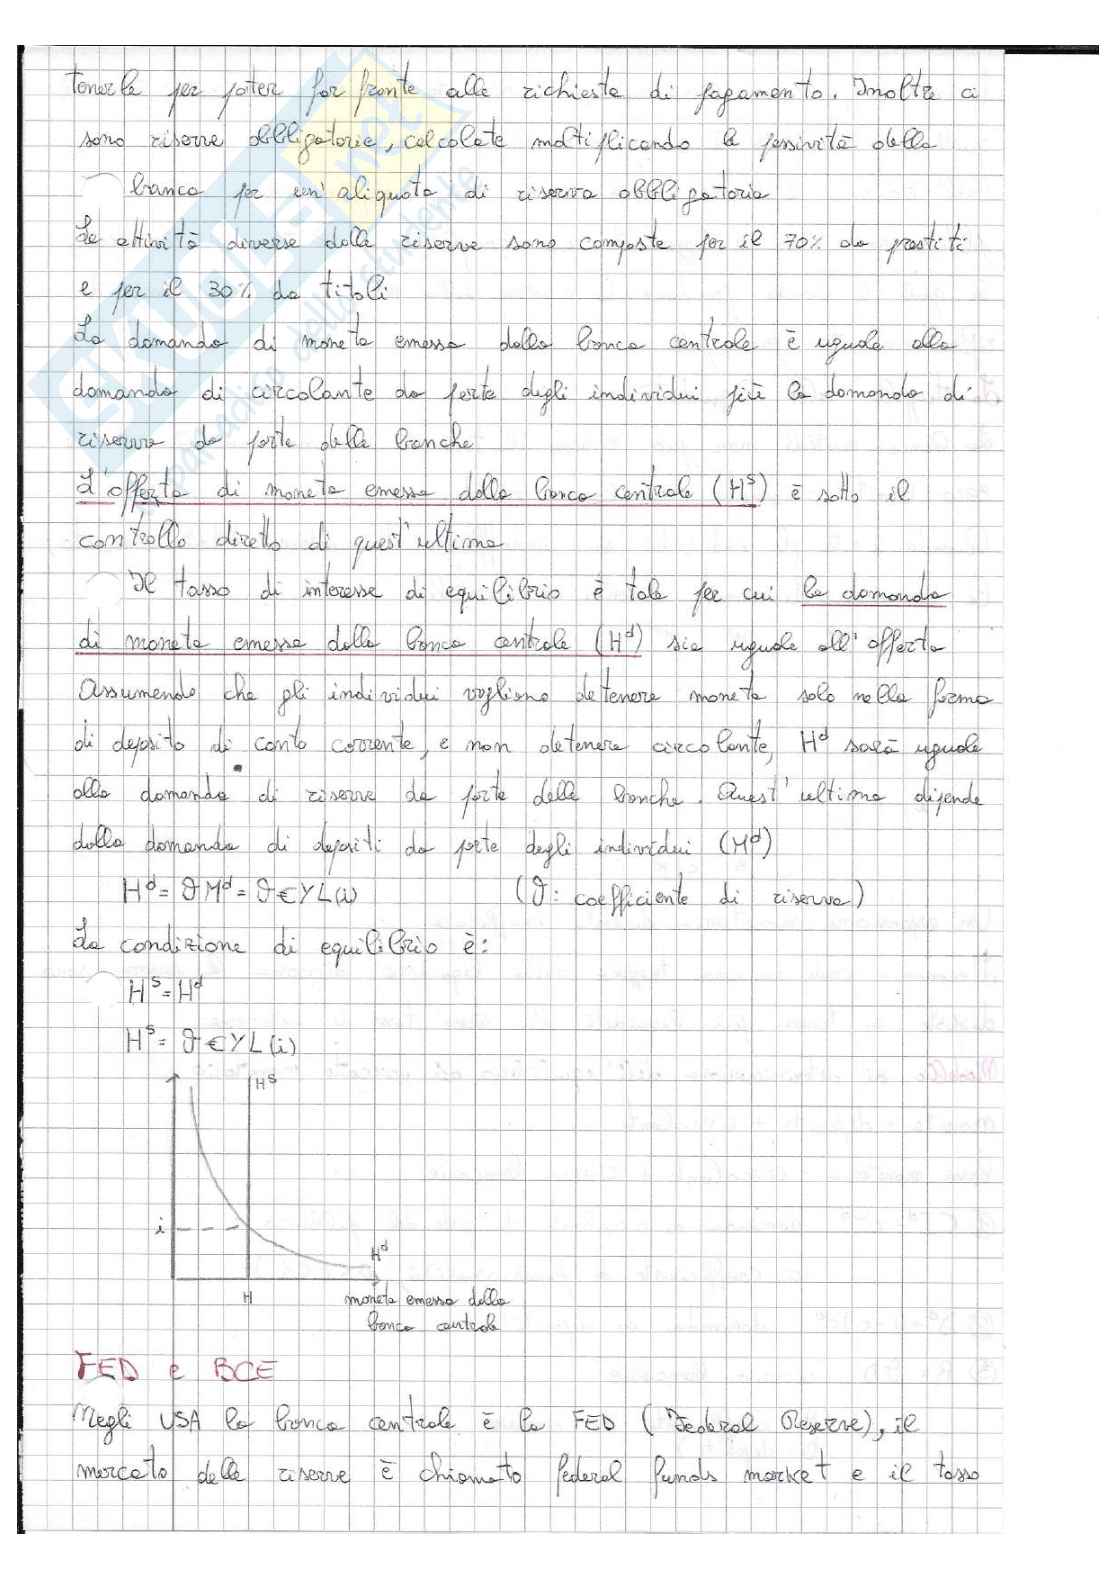 tenerle per poter far fronte alle richieste di pagamento. Inoltre ci
sono riserve obbligatorie, calcolate moltiplicando le passività della
banca per un'aliquota di riserva obbligatoria
Le attività diverse dalle riserve sono composte per il 70% da prestiti
e per il 30% da titoli
La domanda di moneta emessa dalla banca centrale è uguale alla
domanda di circolante da parte degli individui più la domanda di
riserve da parte delle banche
L'offerta di moneta emessa dalla banca centrale (Hˢ) è sotto il
controllo diretto di quest'ultima
Il tasso di interesse di equilibrio è tale per cui la domanda
di moneta emessa dalla banca centrale (Hᵈ) sia uguale all'offerta
Assumendo che gli individui vogliano detenere moneta solo nella forma
di deposito di conto corrente, e non detenere circolante, Hᵈ sarà uguale
alla domanda di riserve da parte delle banche. Quest'ultima dipende
dalla domanda di depositi da parte degli individui (Mᵈ)
Hᵈ= ϑMᵈ= ϑ€YL(i) (ϑ: coefficiente di riserva)
La condizione di equilibrio è:
Hˢ=Hᵈ
Hˢ= ϑ€YL(i)
Hˢ
i
Hᵈ
H
moneta emessa dalla
banca centrale
FED e BCE
Negli USA la banca centrale è la FED (Federal Reserve), il
mercato delle riserve è chiamato federal funds market e il tasso